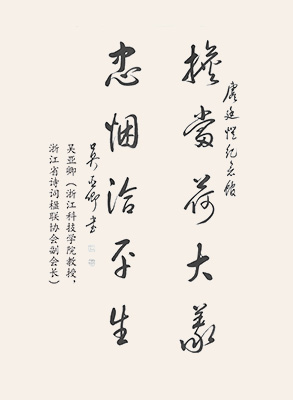 虞廷愷纪念馆
擔當荷大義
忠悃洽平生
吴亚卿书
吴亚卿（浙江科技学院教授，
浙江省诗词楹联协会副会长）